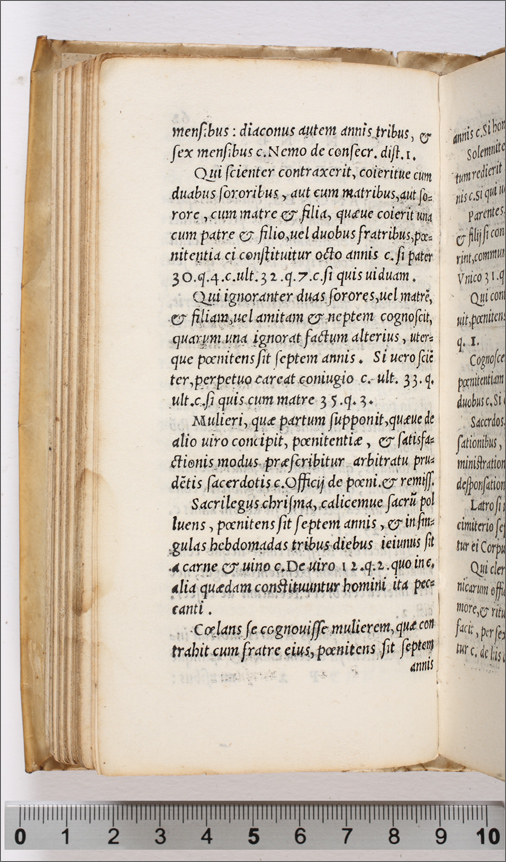 menſibus : diaconus autem annis tribus, &
ſex menſibus c.Nemo de conſecr. diſt.1.
Qui ſcienter contraxerit, coieritue cum
duabus ſororibus , aut cum matribus,aut ſo-
rore , cum matre & filia, quæue coierit una
cum patre & filio,uel duobus fratribus,pœ-
nitentia ei conſtituitur octo annis c.ſi pater
30.q.4.c.ult.32.q.7.c.ſi quis uiduam .
Qui ignoranter duas ſorores,uel matrē,
& filiam,uel amitam & neptem cognoſcit,
quarum una ignorat factum alterius , uter-
que pœnitens ſit ſeptem annis . Si uero ſciē
ter,perpetuo careat coniugio c. ult. 33.q.
ult.c.ſi quis cum matre 35.q.3.
Mulieri, quæ partum ſupponit,quæue de
alio uiro concipit, pœnitentiæ , & ſatisfa-
ctionis modus præſcribitur arbitratu pru-
dētis ſacerdotis c.Officij de pœni.& remiſſ.
Sacrilegus chriſma, calicemue ſacrū pol
luens , pœnitens ſit ſeptem annis , & in ſin-
gulas hebdomadas tribus diebus ieiunus ſit
a carne & uino c.De uiro 12.q.2.quo in c.
alia quædam conſtituuntur homini ita pec-
canti .
Cœlans ſe cognouiſſe mulierem,quæ con
trahit cum fratre eius, pœnitens ſit ſeptem
annis
annis c.Si hom
Solemnite
tum redierit
nis c.ſi qui u
Parentes,
& filij ſi con
rint,commun
Vnico 31.q
Qui cont
uit,pœnitens
q. 1.
Cognoſce
pœnitentiam
duobus c.Si
Sacerdos
ſationibus ,
miniſtration
deſponſation
Latro ſi
cimiterio ſep
tur ei Corpu
Qui cler
nicarum offi
more,& ritu
facit, per ſex
tur c. de his
0 1 2 3 4 5 6 7 8 9 10